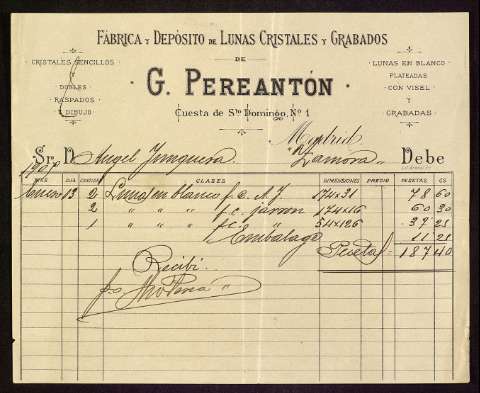 FÁBRICA Y DEPÓSITO DE LUNAS CRISTALES Y GRABADOS
DE
G. PEREANTÓN
Cuesta de Sto Domingo, Nº 1
CRISTALES SENCILLOS
Y
DOBLES
RASPADOS
Y DIBUJO
LUNAS EN BLANCO
PLATEADAS
CON VISEL
Y
GRABADAS
Madrid
Sr. D. Angel Junquera Zamora Debe
1907
MES DIA CLASES DIMENSIONES PRECIO PESETAS CS
Enero 13 2 Lunas en blanco f. c. A. J. 174×31 78 60
2 " " " f. c. 174×16 60 30
1 " " " 54×126 37 25
Embalage 11 25
Pesetas 187 40
Recibí